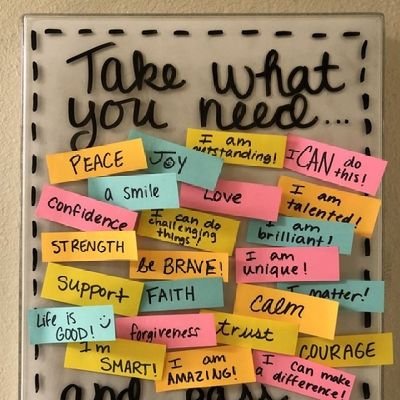 Take what
you need...
PEACE
JOY
I am
outstanding!
I CAN do
this!
a smile
Love
I am
talented!
confidence
I can do
challenging
things!
I am
brilliant!
STRENGTH
be BRAVE!
I am
unique!
Support
FAITH
calm
I matter!
Life is
GOOD!
forgiveness
trust
COURAGE
I'm
SMART!
I am
AMAZING!
I can make
a difference!
and pass